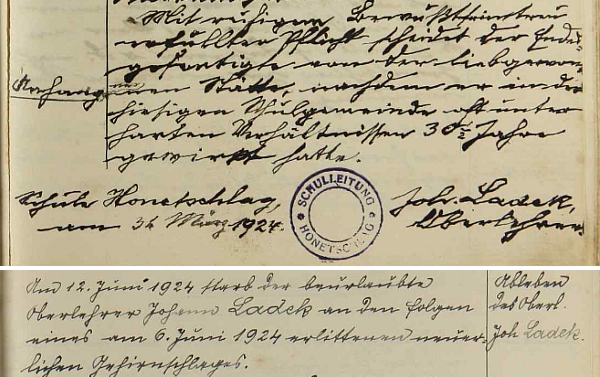 Mit ruhigem Bewußtsein treu
erfüllter Pflicht scheidet der Ende-
gefertigte von der liebgewon-
Anhang
nenen Stätte, nachdem er in der
hiesigen Schulgemeinde oft unter
harten Verhältnissen 30½ Jahre
gewirkt hatte.
Schule Honetschlag,
am 31. März 1924.
SCHULLEITUNG
HONETSCHLAG
Joh. Ladek,
Oberlehrer.
Am 12. Juni 1924 starb der beurlaubte
Oberlehrer Johann Ladek an den Folgen
eines am 6. Juni 1924 erlittenen neuer-
lichen Gehirnschlages.
Ableben
des Oberl.
Joh. Ladek.